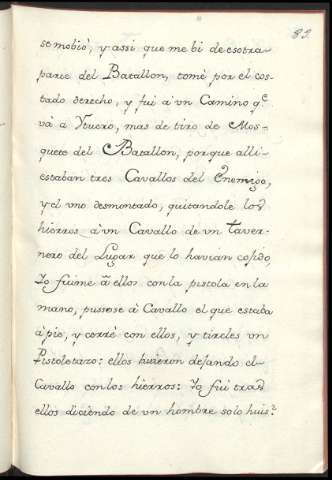 83
se mobiò, y assi que me bi de esotra
parte del Batallon, tomè por el cos-
tado derecho, y fui à vn Camino q.e
và à Ytuero, mas de tiro de Mos-
quete del Batallon, porque alli
estaban tres Cavallos del Enemigo,
y el vno desmontado, quitandole los
hierros à vn Cavallo de vn taver-
nero del Lugar que lo havian cojido
Yo fuime à ellos con la pistola en la
mano, pussose à Cavallo el que estaba
à pie, y corrè con ellos, y tireles vn
Pistoletazo: ellos huieron dejando el
Cavallo con los hierros: Yo fui tras
ellos diciendo de vn hombre solo huis?